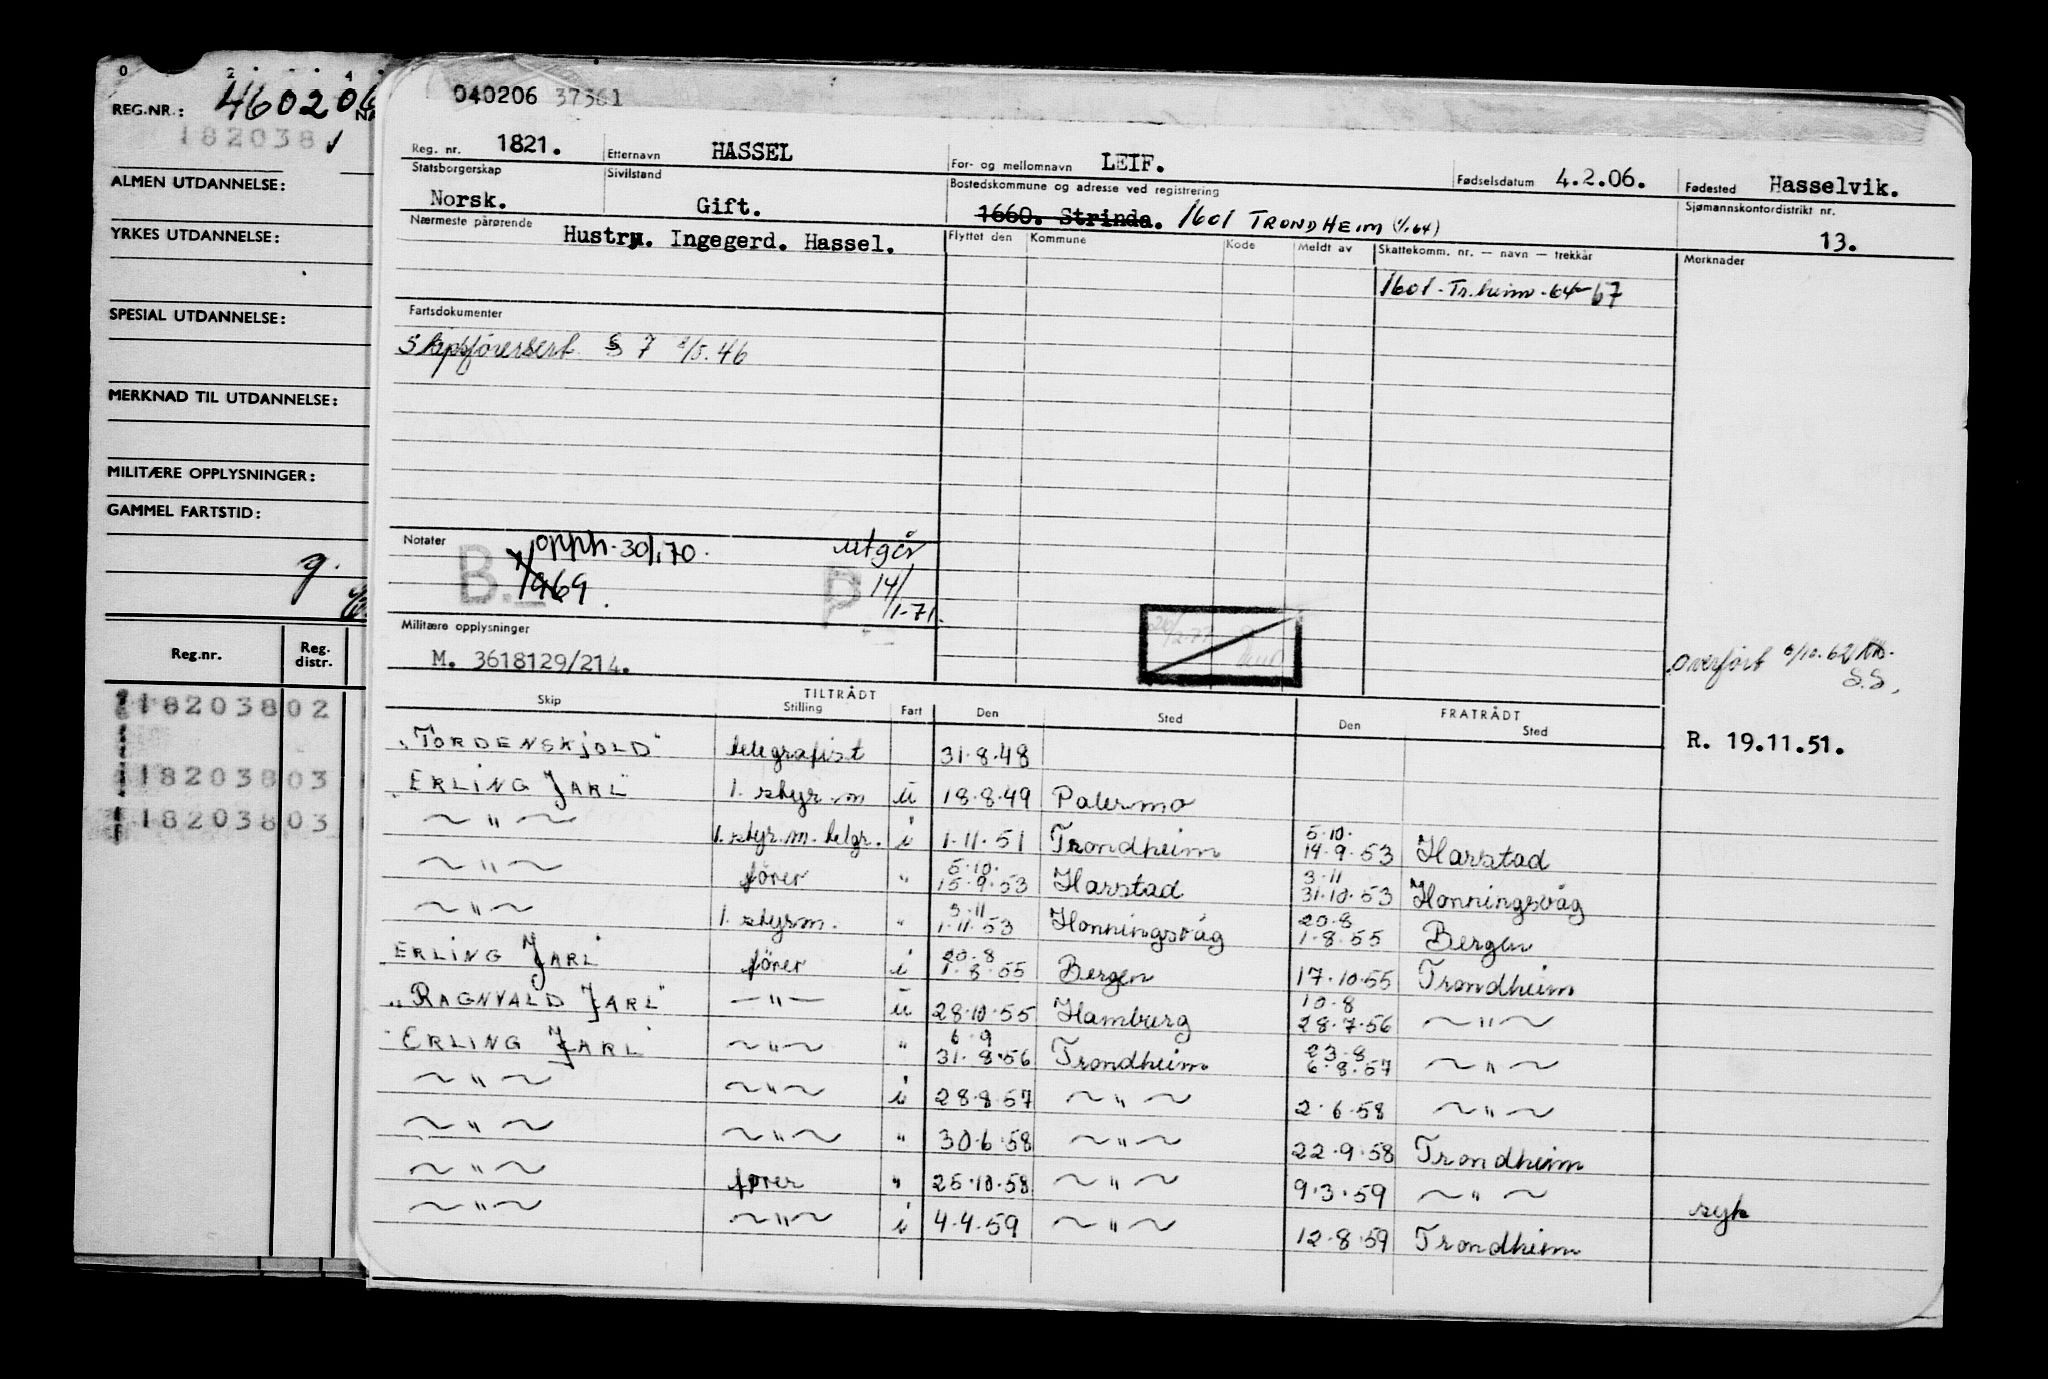 0 2 4
REG.NR.: 460206 NA
182038
ALMEN UTDANNELSE:
YRKES UTDANNELSE:
SPESIAL UTDANNELSE:
MERKNAD TIL UTDANNELSE:
MILITÆRE OPPLYSNINGER:
GAMMEL FARTSTID:
g.
Reg.nr. Reg. distr.
182038 02
182038 03
182038 03
040206 37361
Reg. nr. 1821. Etternavn HASSEL For- og mellomnavn LEIF. Fødselsdatum 4.2.06. Fødested Hasselvik.
Statsborgerskap Norsk. Sivilstand Gift. Bostedskommune og adresse ved registrering 1660. Strinda. 1601 TRONDHEIM (1/1 64) Sjømannskontordistrikt nr. 13.
Nærmeste pårørende Hustru. Ingegerd. Hassel. Flyttet den Kommune Kode Meldt av Skattekomm. nr. — navn — trekkår Merknader
1601 - Tr.heim - 64-67
Fartsdokumenter
Skipsførersert. § 7 /5.46
Notater opph. 30/1 70. utgår
B. 1/9 69. P 14/1-71.
Militære opplysninger
M. 3618129/214.
overført 6/10.62
S.S.
TILTRÅDT FRATRÅDT
Skip Stilling Fart Den Sted Den Sted
R. 19.11.51.
"TORDENSKJOLD" telegrafist 31.8.48
"ERLING JARL" 1. styr.m u 18.8.49 Palermo
— " — 1. styr.m. telgr. i 1.11.51 Trondheim 5.10. 14.9.53 Harstad
— " — fører " 5.10. 15.9.53 Harstad 3.11 31.10.53 Honningsvåg
— " — 1. styrm. " 3.11 1.11.53 Honningsvåg 20.8 1.8.55 Bergen
ERLING JARL fører i 20.8 1.8.55 Bergen 17.10.55 Trondheim
"RAGNVALD JARL" — " — u 28.10.55 Hamburg 10.8 28.7.56 — " —
ERLING JARL — " — " 6.9 31.8.56 Trondheim 23.8 6.8.57 — " —
— " — — " — i 28.8.57 — " — 2.6.58 — " —
— " — — " — " 30.6.58 — " — 22.9.58 Trondheim
— " — fører " 25.10.58 — " — 9.3.59 — " — syk
— " — — " — i 4.4.59 — " — 12.8.59 Trondheim